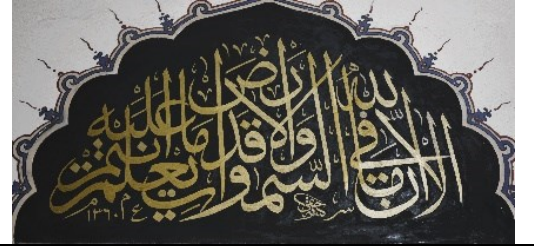 الا ان لله ما في السموات والارض قد يعلم ما انتم عليه
١٣٦٠